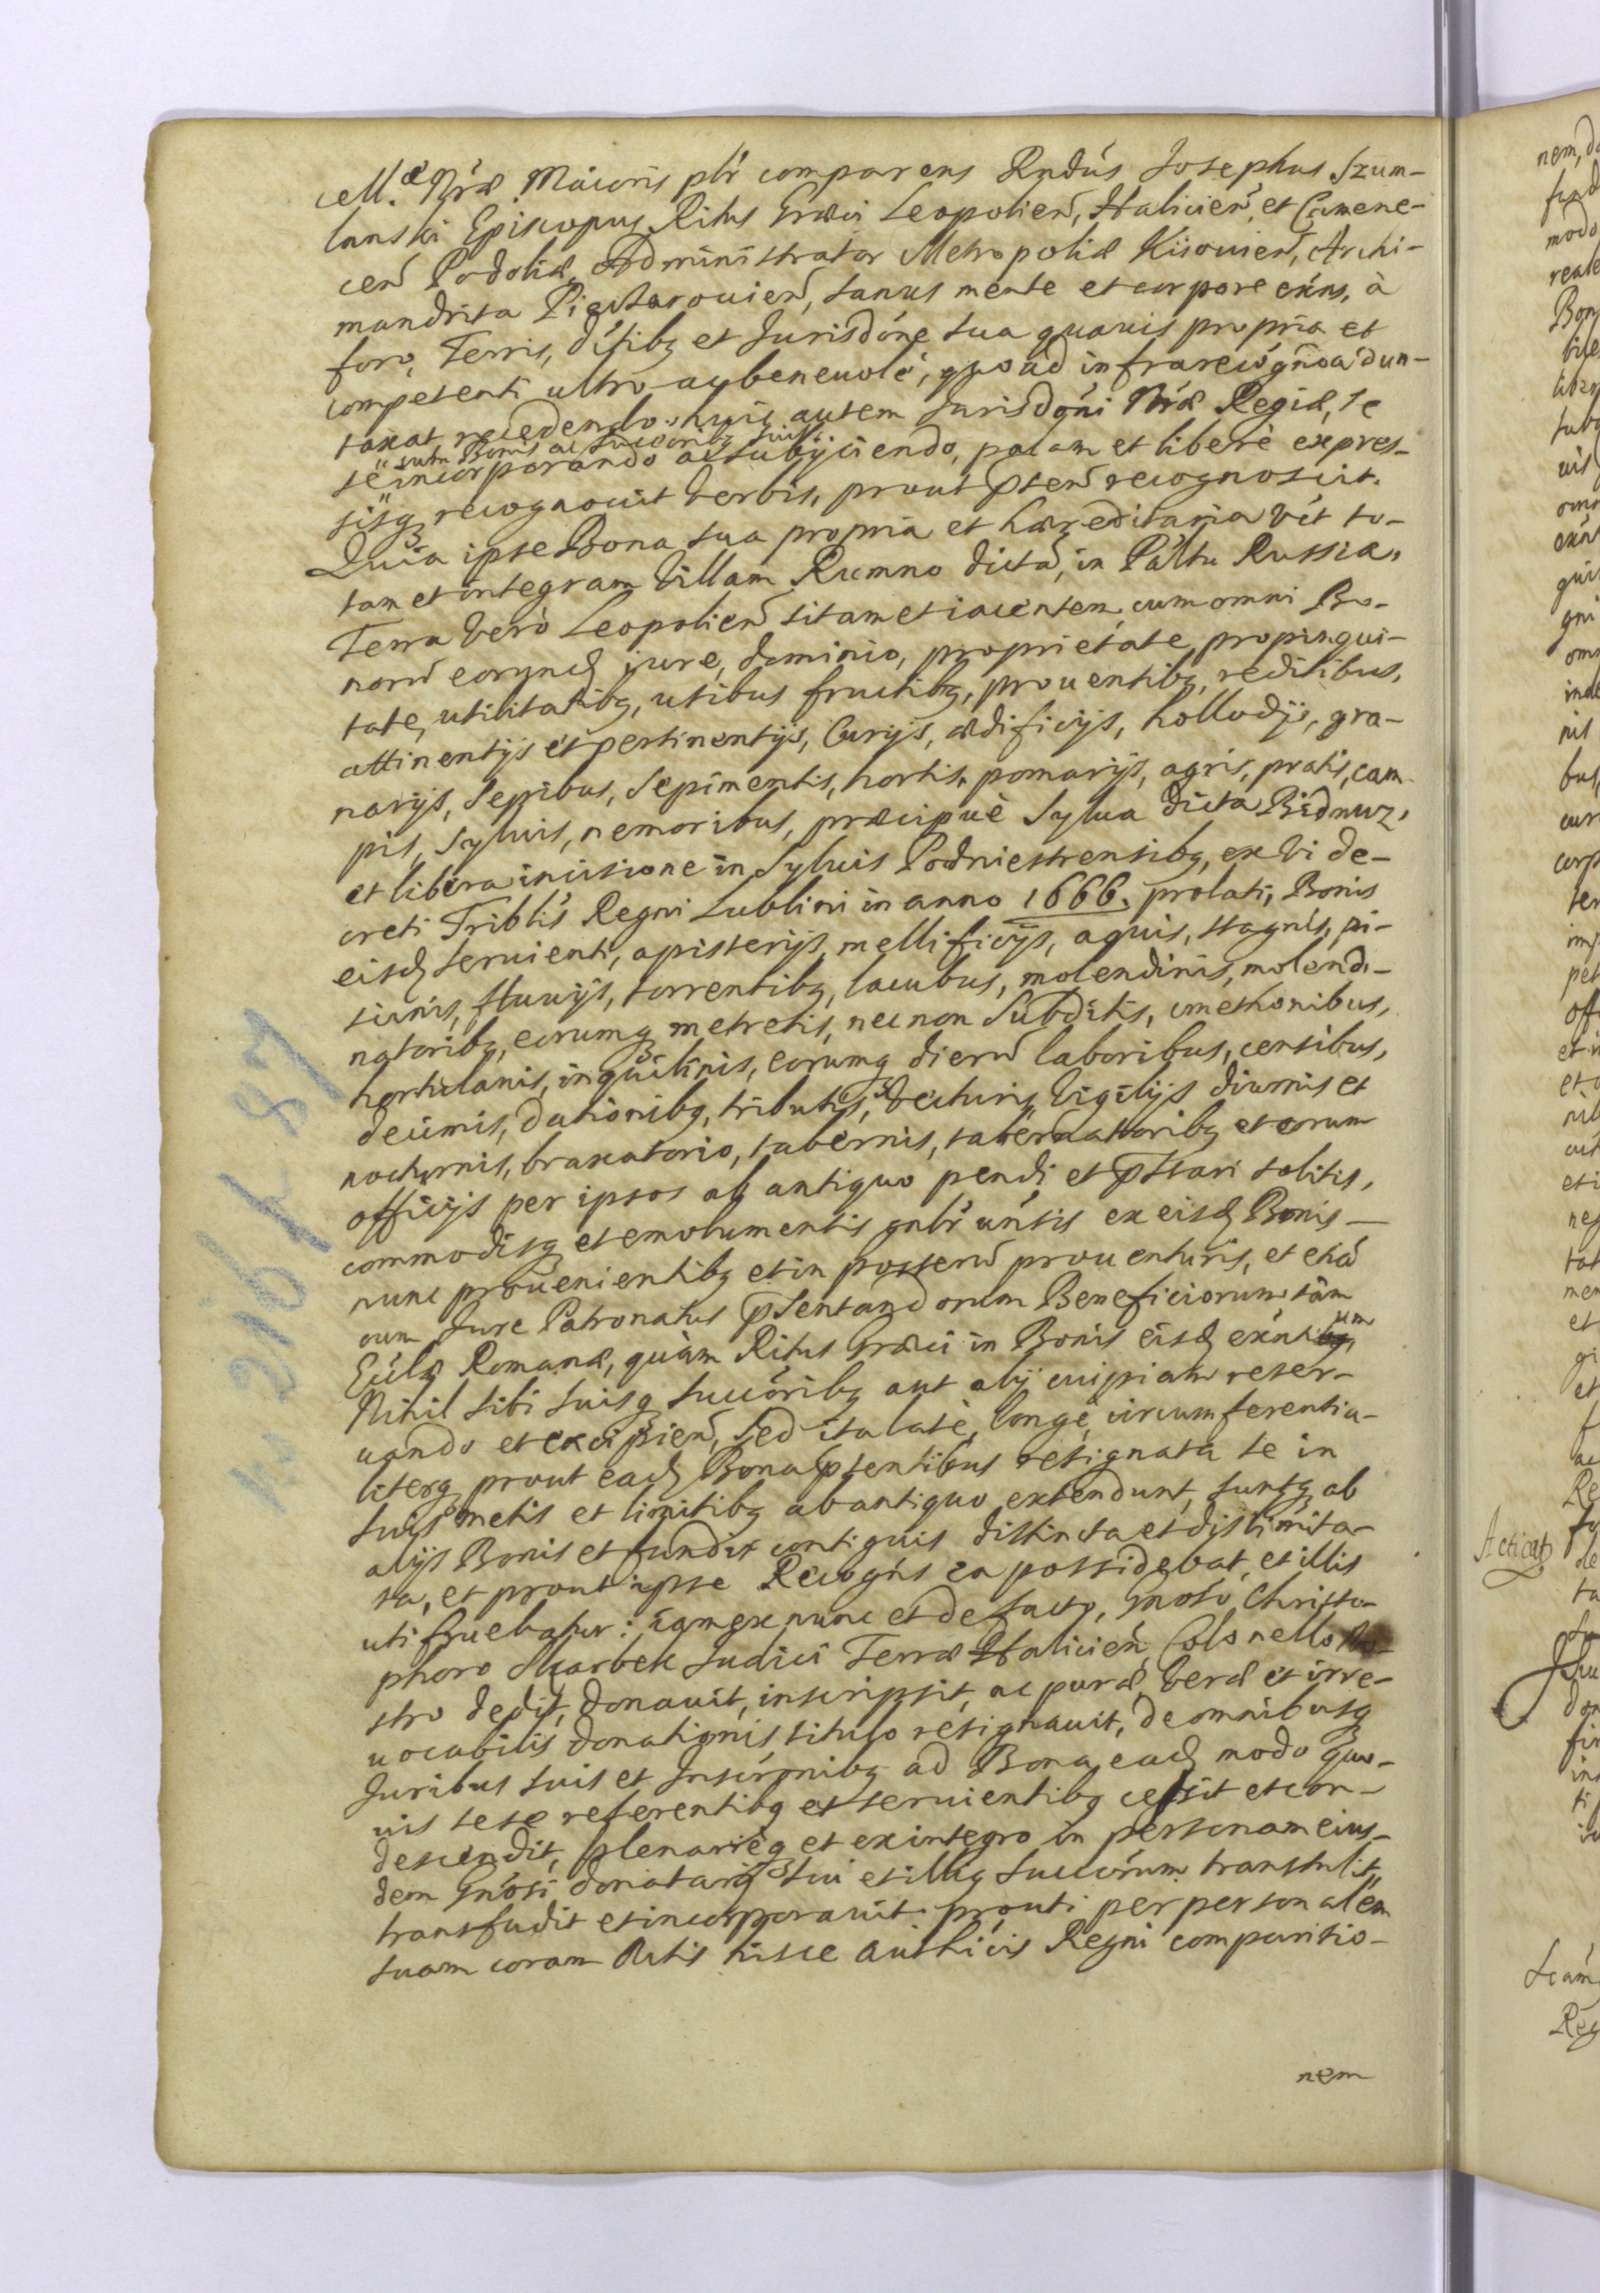 M.æ Nræ Maioris plr comparens Rndus Josephus Szum-
lanski Episcopus Ritus Græci Leopolien, Halicien et Camene-
cen Podoliæ, Administrator Metropoliæ Kiiovien, Archi-
mandrita Pieczarovien, sanus mente et corpore exns, à
foro, Terris, dstibq et Jurisdóne sua quavis propria et
competenti ultro ac benevolè, quo ad infrarecógnoa dun-
taxat recedendo, huic autem Jurisdóni Nræ Regiæ, se
cum Bonis ac Succoribq suis
se incorporando ac subijciendo, palam et liberè expres-
sisq recognovit verbis, prout pnten recognoscit.
Quia ipse Bona sua propria et hæreditaria vét to-
tam et integram Villam Rumno dictã, in Páltu Russiæ,
Terra verò Leopolien sitam et iacentem, cum omni Bo-
norũ eorund jure, dominio, proprietate, propinqui-
tate, utilitatibq, usibus fructibq, proventibq, reditibus,
attinentijs et pertinentijs, Curijs, ædificijs, hollodijs, gra-
narijs, Sepibus, Sepimentis, hortis, pomarijs, agris, pratis, cam-
pis, Sylvis, nemoribus, præcipuè Sylva dicta Bidnuz,
et libera incisione in Sylvis Podniestrensibq, ex vi de-
creti Triblis Regni Lublini in anno 1666. prolati, Bonis
eisd servienti, apisterijs, mellificijs, aquis, stagnis, pi-
scinis, fluvijs, torrentibq, lacubus, molendinis, molendi-
natoribq, eorumq metretis, nec non Subditis, cmethonibus,
hortulanis, inquilinis, eorumq dierũ laboribus, censibus,
decimis, dationibq, tributis, vecturis, vigilijs diurnis et
nocturnis, braxatorio, tabernis, tabernatoribq et eorum
officijs per ipsos ab antiquo pendi et pstari solitis,
commodisq et emolumentis gnlr únsis ex eisd Bonis
nunc provenientibq et in posterũ proventuris, et etiã
cum Jure Patronatus psentandorum Beneficiorum tàm
Ecclæ Romanæ, quàm Ritus Græci in Bonis eisd exntium
Nihil sibi suisq Succóribq aut alij cuipiam reser-
vando et excipien, Sed ita latè, longè, circumferentia-
literq prout ead Bona psentibus resignata se in
suis metis et limitibq ab antiquo extendunt, suntq ab
alijs Bonis et fundis contiguis distincta et dislimita-
ta, et prout ipse Recogńs ea possidebat, et illis
uti fruebatur: iam ex nunc et de facto, Gnoso Christo-
phoro Skarbek Judici Terræ Halicien, Colonello No-
stro dedit, donavit, inscripsit, ac puræ, veræ et irre-
vocabilis donationis titulo resignavit, de omnibusq
Juribus suis et Inscrpnibq ad Bona ead modo quo-
vis sese referentibq et servientibq cessit et con-
descendit, plenariéq et ex integro in personam eius-
dem Gnosi donatarij sui et illiq Succórum transtulit,
transfudit et incorporavit prouti per personalem
suam coram Actis hisce Authicis Regni comparitio-
nem
Acticat